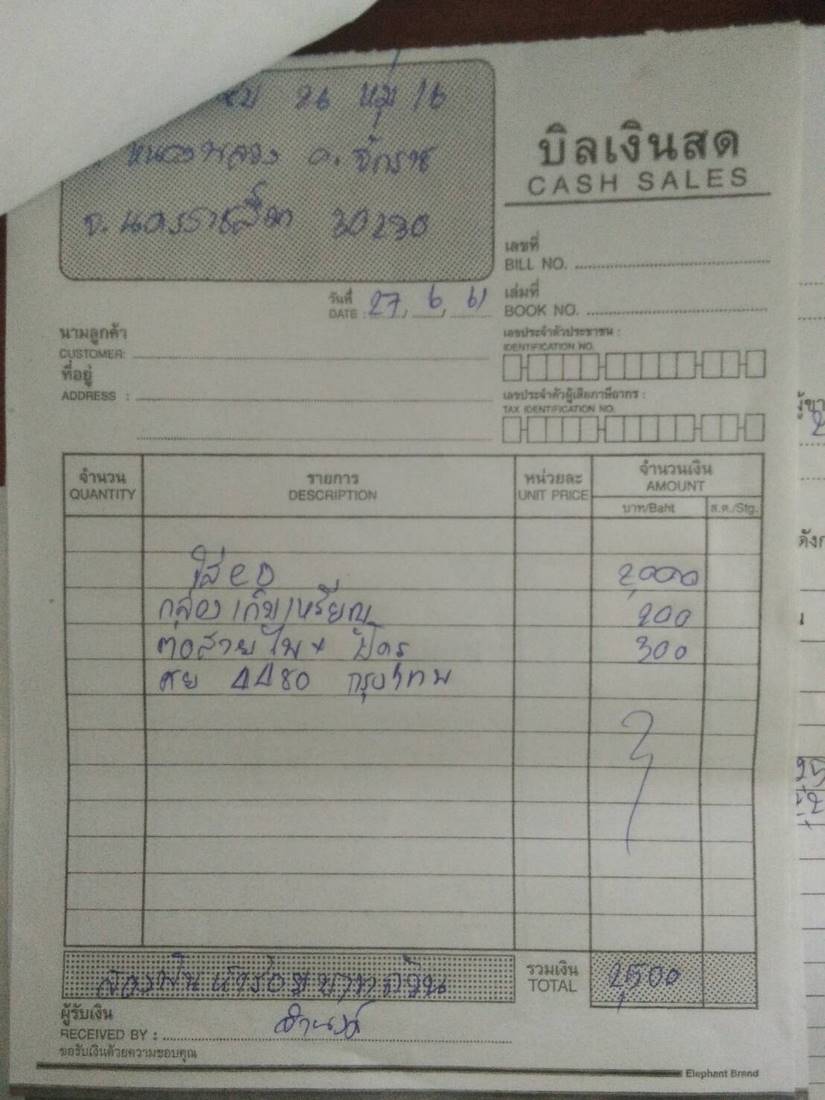 26 หมู่ 16
หนองพลวง อ. จักราช
จ. นครราชสีมา 30230
บิลเงินสด
CASH SALES
เลขที่
BILL NO.
วันที่
DATE : 27, 6, 61
เล่มที่
BOOK NO.
นามลูกค้า
CUSTOMER:
ที่อยู่
ADDRESS :
เลขประจำตัวประชาชน :
IDENTIFICATION NO.
เลขประจำตัวผู้เสียภาษีอากร :
TAX IDENTIFICATION NO.
จำนวน รายการ หน่วยละ จำนวนเงิน
QUANTITY DESCRIPTION UNIT PRICE AMOUNT
บาท/Baht ส.ต./Stg.
ใส่ 2,000
กล่องเก็บเหรียญ 200
ต่อสายไฟ + 300
4480 กรุงเทพ
สองพันห้าร้อยบาทถ้วน รวมเงิน 2,500
TOTAL
ผู้รับเงิน
RECEIVED BY :
ขอรับเงินด้วยความขอบคุณ
Elephant Brand